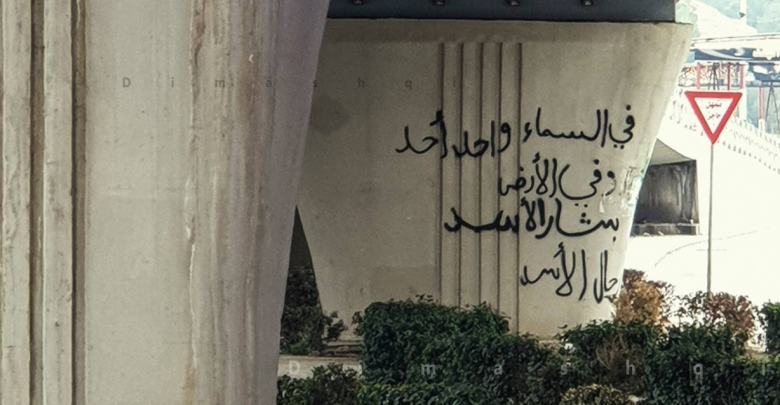 في السماء واحد أحد
وفي الأرض
بشار الأسد
جال الأسد
تمهل
Dimashqi
Dimashqi